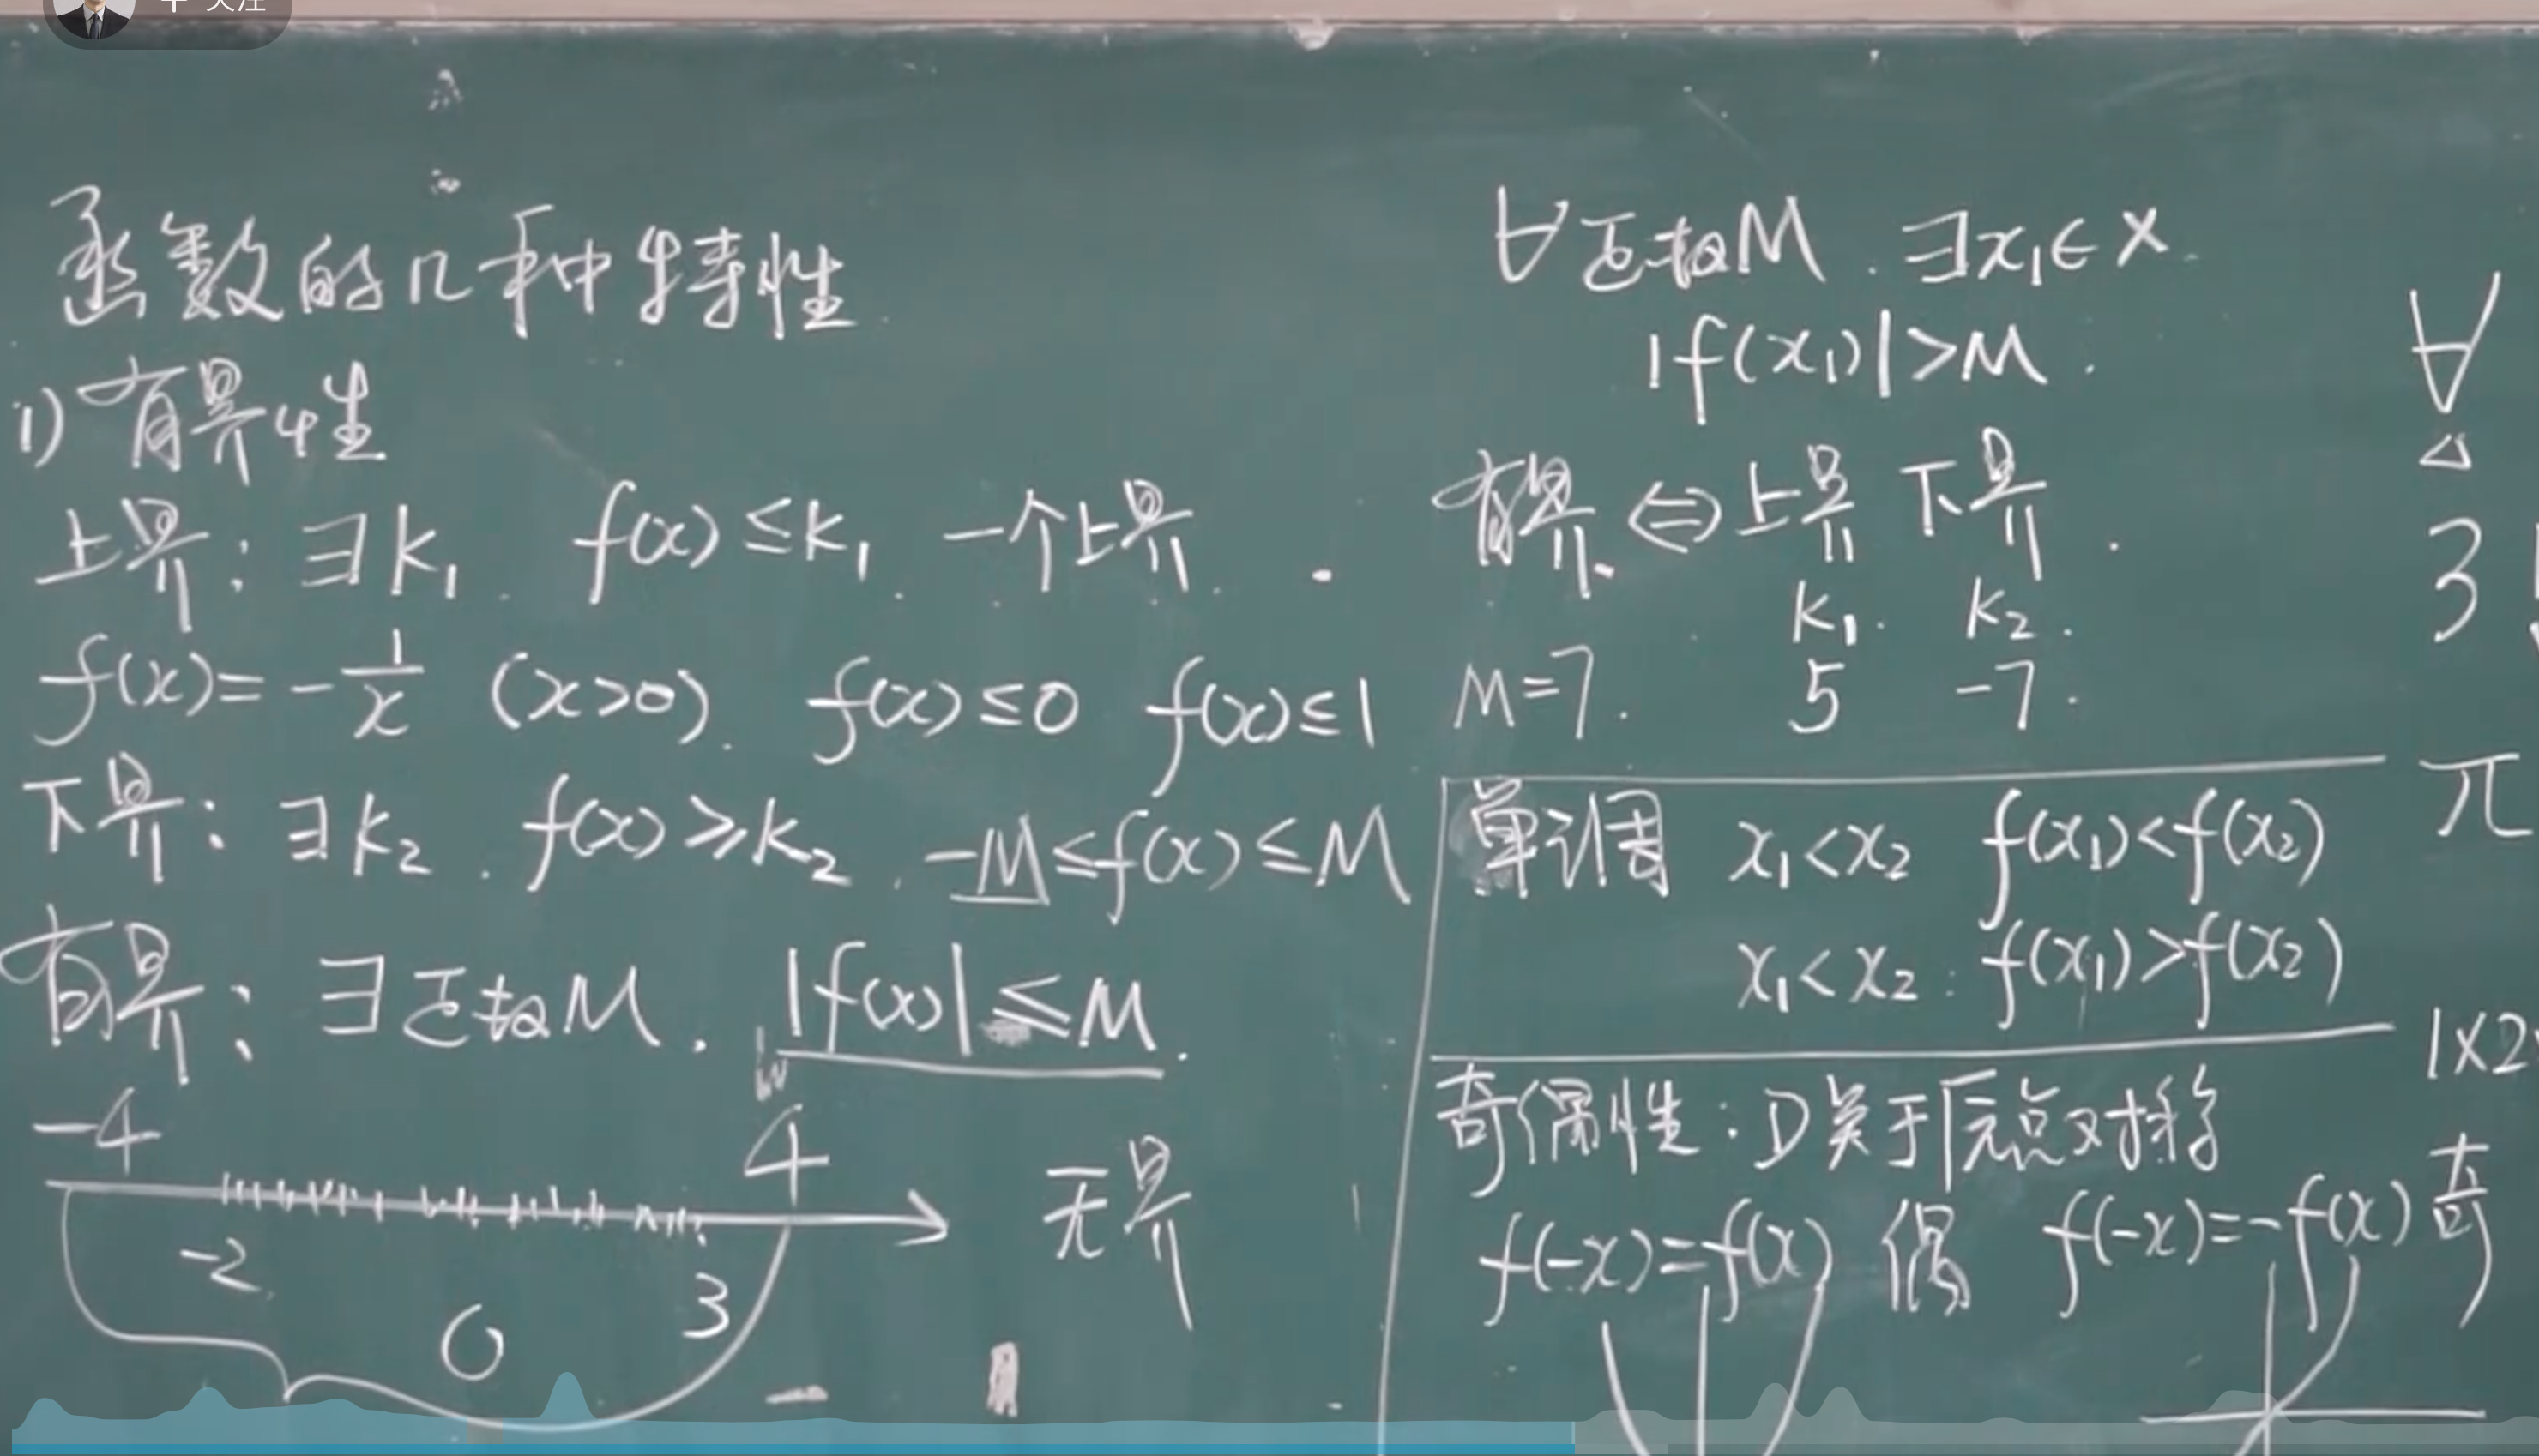 + 关注
函数的几种特性
1) 有界性
上界: ∃k₁ f(x)≤k₁ 一个上界
f(x)=-1/x (x>0). f(x)≤0 f(x)≤1
下界: ∃k₂. f(x)≥k₂. -M≤f(x)≤M
有界: ∃正数M. |f(x)|≤M.
-4 4
-2 0 3
无界
∀正数M. ∃x₁∈X
|f(x₁)|>M.
有界 ⇔ 上界 下界
k₁. k₂.
M=7. 5 -7.
单调 x₁<x₂ f(x₁)<f(x₂)
x₁<x₂ f(x₁)>f(x₂)
奇偶性: D关于原点对称
f(-x)=f(x) 偶 f(-x)=-f(x) 奇
∀
∃
π
1×2